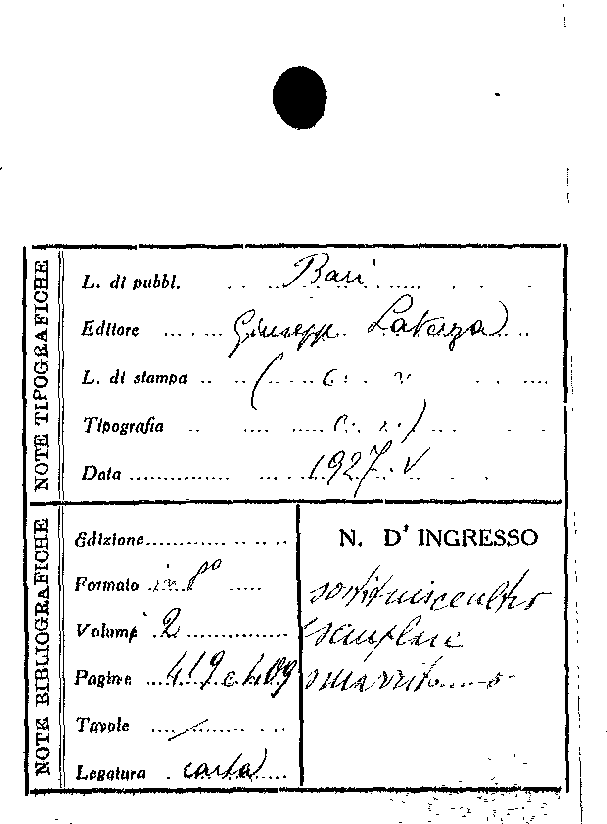 NOTE TIPOGRAFICHE
L. di pubbl. Bari
Editore Giuseppe Laterza
L. di stampa ( c. s.
Tipografia c. s. )
Data 1927. V
NOTE BIBLIOGRAFICHE
Edizione
Formato in 8º
Volumi 2
Pagine 419 e 409
Tavole /
Legatura carta
N. D' INGRESSO
sostituisce altro
esemplare
smarrito